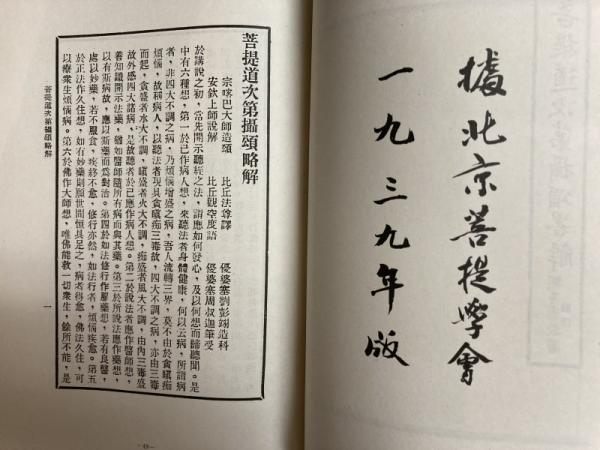 據北京菩提學會
一九三九年版
菩提道次第攝頌略解
宗喀巴大師造頌　比丘法尊譯　優婆塞劉彭翊造科
安欽上師說解　比丘觀空度語　優婆塞周叔迦筆受
於講說之初，當先開示聽經之法，請應如何發心，及以何想而歸聽聞。是
中有六種想，第一於已作病人想，來聽法者身體健康，何以云病，所謂病
者，非四大不調之病，乃煩惱增盛之病，吾人流轉三界，莫不由於貪瞋痴
煩惱，故稱病人，以聽法者現具貪瞋痴三毒故，四大不調之病，亦由三毒
而起，貪盛者水大不調，瞋盛者火大不調，痴盛者風大不調，由內三毒盛
故外感四大諸病，是故聽者於己應作病人想。第二於說法者應作醫師想，
善知識開示法藥，猶如醫師隨所有病而與其藥。第三於所說法應作藥想，
以有斯病故，應以斯藥而爲對治。第四於如法修行作服藥想，若有良醫，
處以妙藥，若不服食，疾終不愈，修行亦然，如法行者，煩惱疾愈。第五
於正法作久住想，如有妙藥則願世間恒具足之，病者得愈，佛法久住，可
以療衆生煩惱病。第六於佛作大師想，唯佛能救一切衆生，餘所不能，是
菩提道次第攝頌略解　一